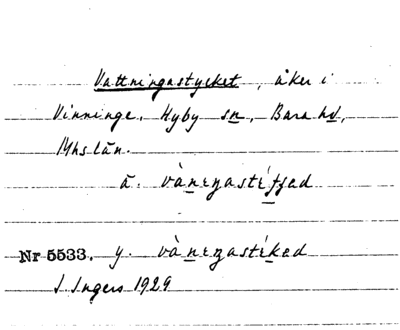 Vattningastycket, åker i
Vinninge, Hyby sn, Bara hd,
Mhs län.
ä. vàningastifjed
Nr 5533. y. vàningastiked
I. Ingers 1929